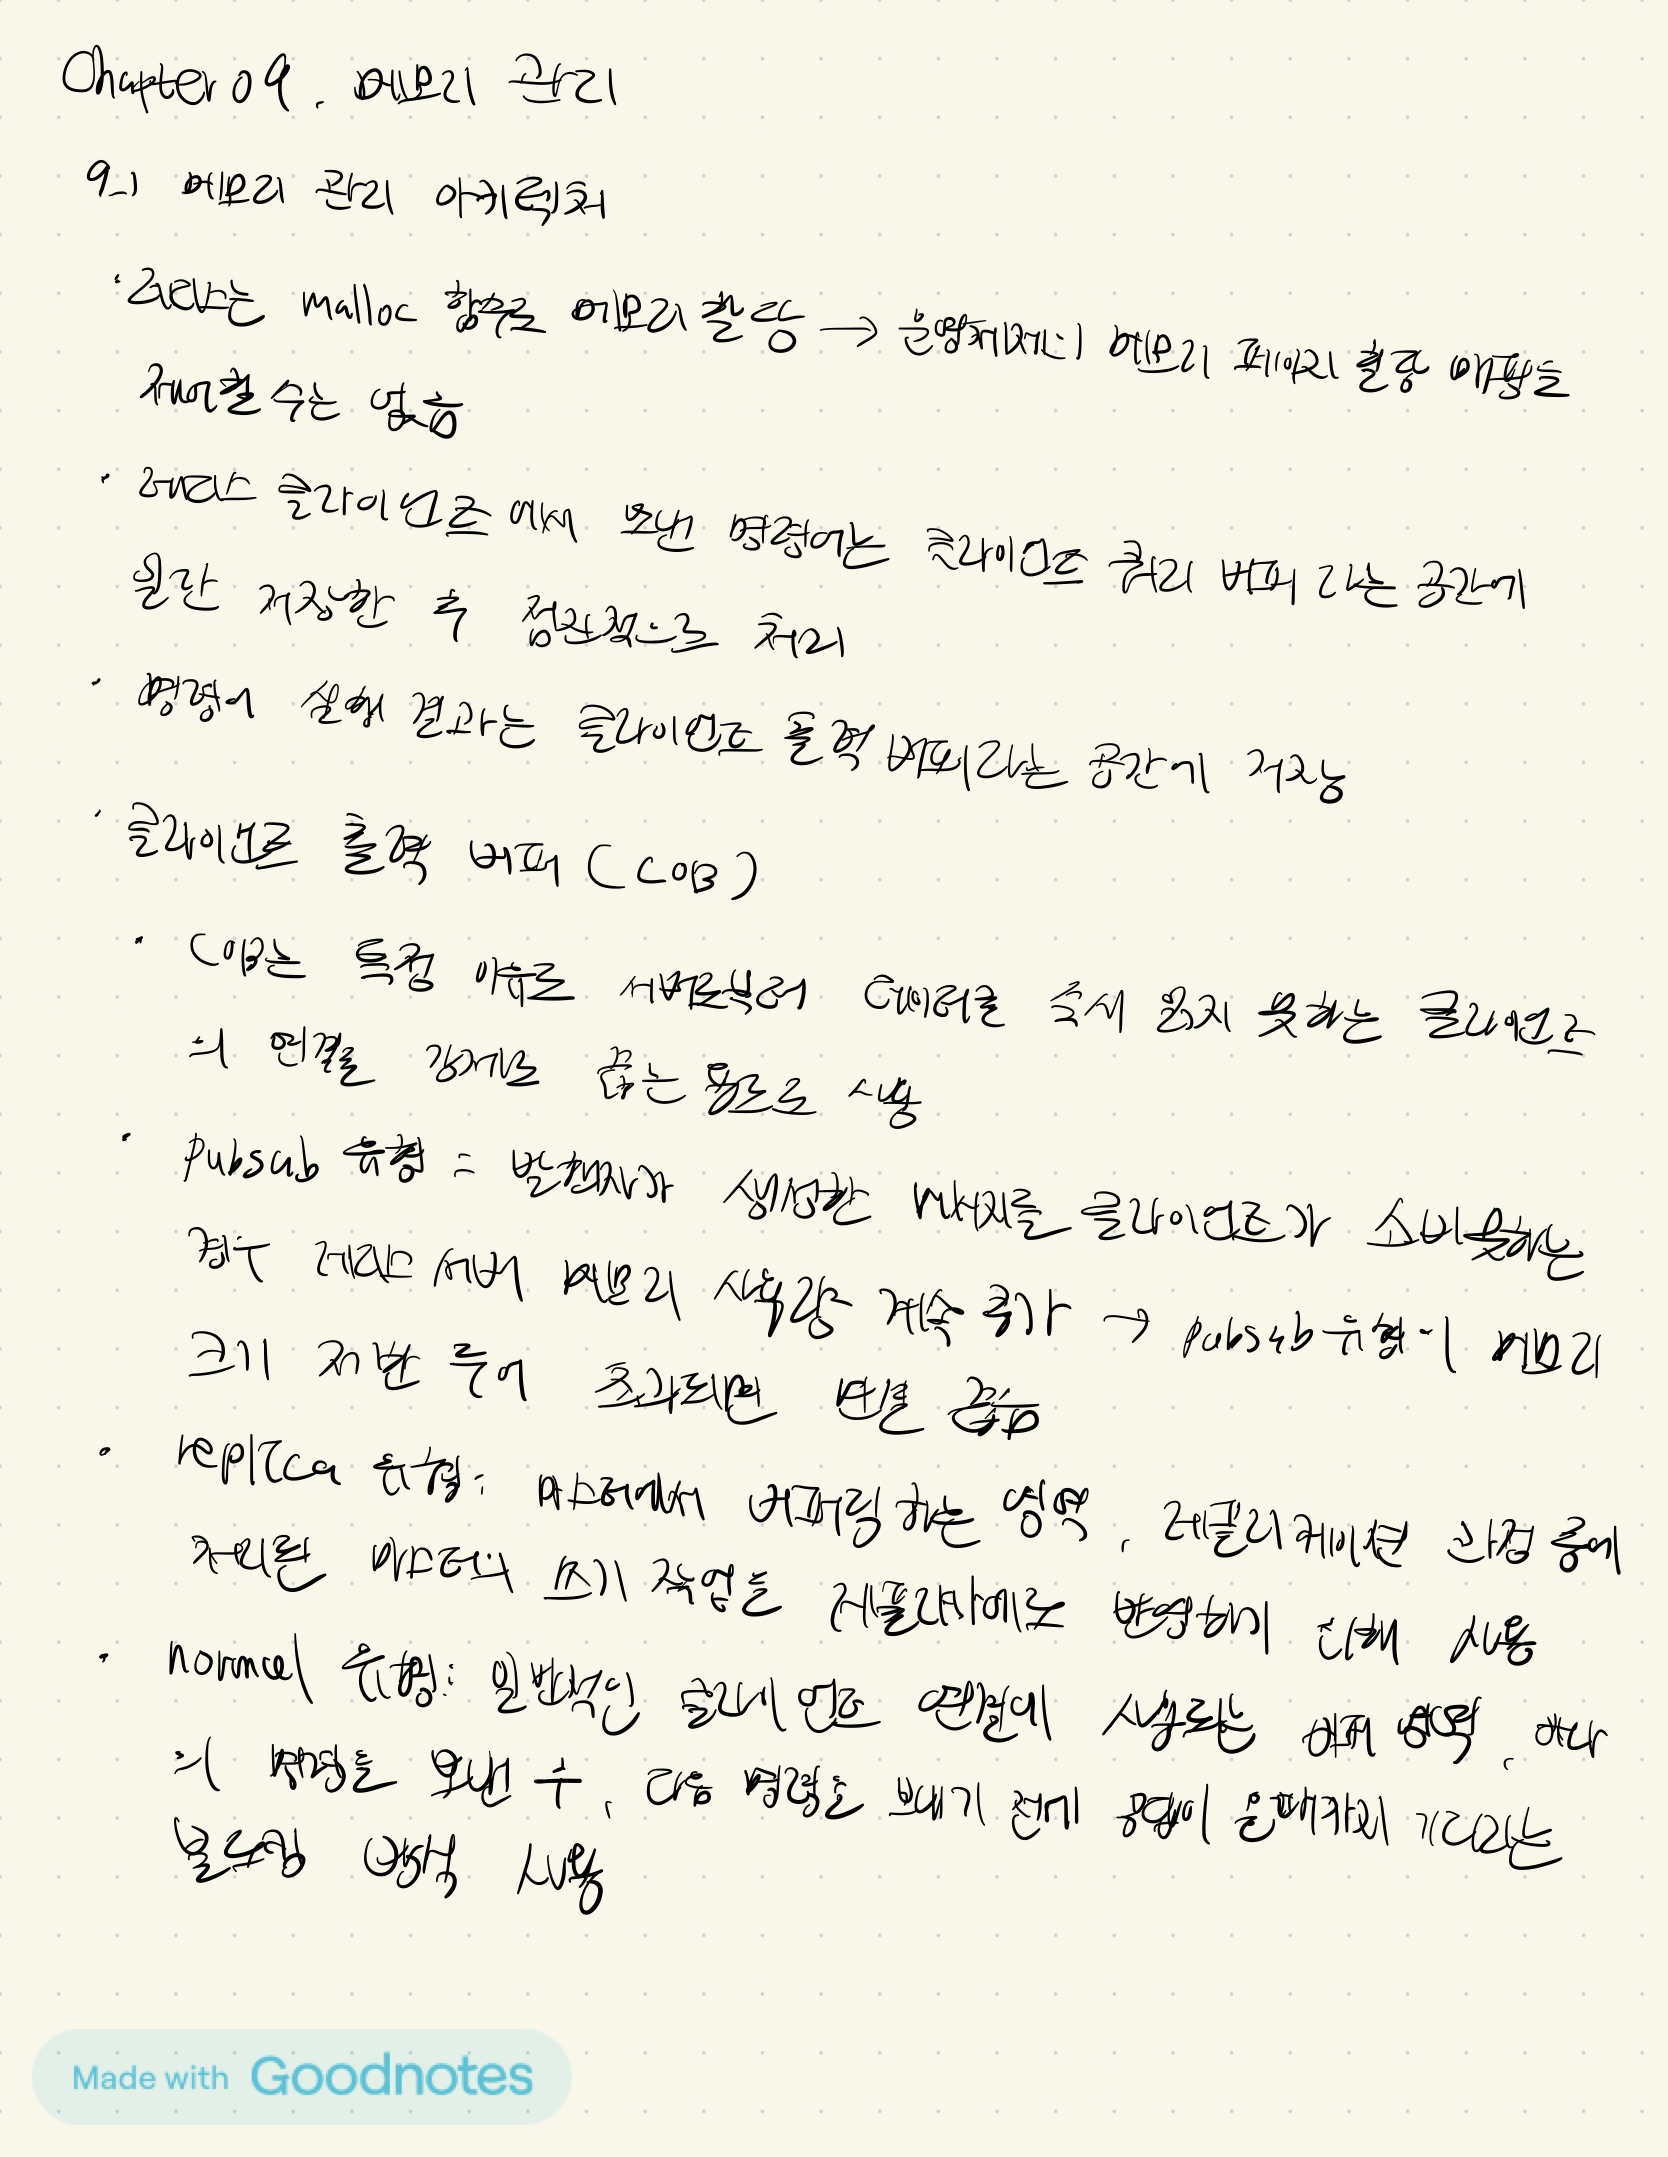 Chapter 09. 메모리 관리
9-1 메모리 관리 아키텍처
· 레디스는 malloc 함수로 메모리 할당 → 운영체제의 메모리 페이지 할당 매핑을
제어할 수는 없음
· 레디스 클라이언트에서 보낸 명령어는 클라이언트 쿼리 버퍼라는 공간에
일단 저장한 후 점진적으로 처리
· 명령어 실행 결과는 클라이언트 출력 버퍼라는 공간에 저장
· 클라이언트 출력 버퍼 (COB)
· COB는 특정 이유로 서버로부터 데이터를 즉시 읽지 못하는 클라이언트
의 연결을 강제로 끊는 용도로 사용
· pubsub 유형 : 발행자가 생성한 메시지를 클라이언트가 소비못하는
경우 레디스 서버 메모리 사용량 계속 증가 → pubsub 유형이 메모리
크기 제한 두어 초과되면 연결 끊음
· replica 유형 : 마스터에서 버퍼링하는 영역, 레플리케이션 과정 중에
처리된 마스터의 쓰기 작업을 레플리카에도 반영하기 위해 사용
· normal 유형 : 일반적인 클라이언트 연결에 사용되는 버퍼 영역, 하나
의 명령을 보낸 후, 다음 명령을 보내기 전에 응답이 올때까지 기다리는
블로킹 방식 사용
Made with Goodnotes